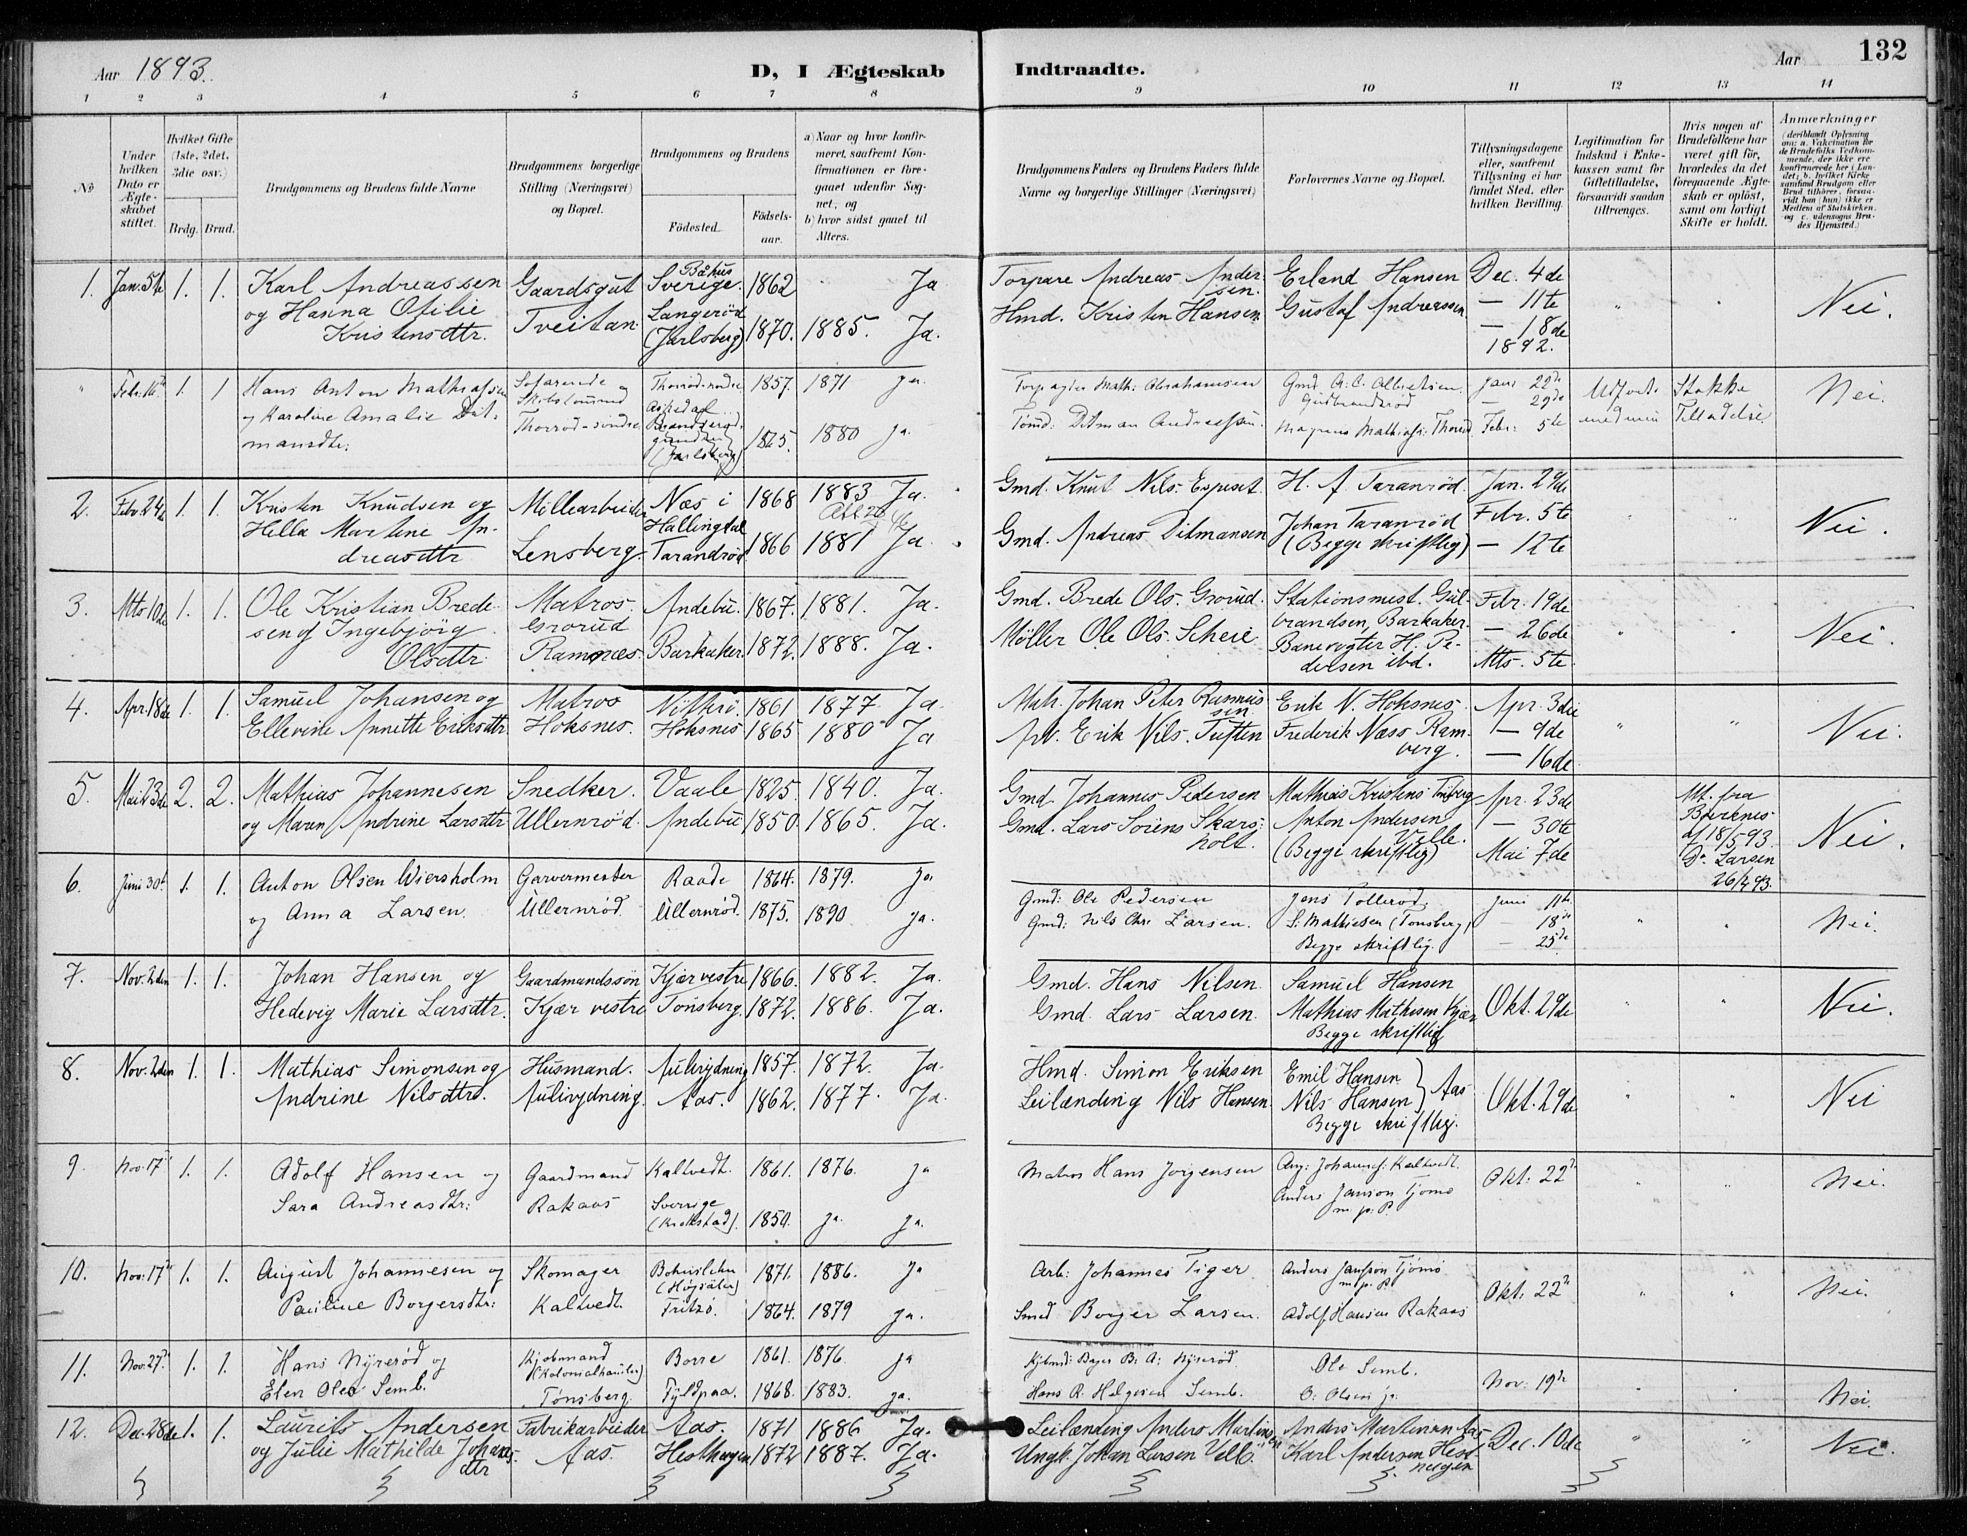 Aar 1893.
D, I Ægteskab
Indtraadte.
Aar
132
1 2 3 4 5 6 7 8 9 10 11 12 13 14
No
Under hvilken Dato er Ægteskabet stiftet.
Hvilket Gifte (1ste, 2det, 3die osv.)
Brdg. Brud.
Brudgommens og Brudens fulde Navne
Brudgommens borgerlige Stilling (Næringsvei) og Bopæl.
Brudgommens og Brudens
Födested.
Födsels-aar.
a) Naar og hvor konfirmeret, saafremt Konfirmationen er foregaaet udenfor Sognet; og
b) hvor sidst gaaet til Alters.
Brudgommens Faders og Brudens Faders fulde Navne og borgerlige Stillinger (Næringsvei)
Forlovernes Navne og Bopæl.
Tillysningsdagene eller, saafremt Tillysning ei har fundet Sted, efter hvilken Bevilling.
Legitimation for Indskud i Enkekassen samt for Giftetilladelse, forsaavidt saadan tiltrænges.
Hvis nogen af Brudefolkene har været gift för, hvorledes da det foregaaende Ægteskab er oplöst, samt om lovligt Skifte er holdt.
Anmærkninger
(deriblandt Oplysning om: a. Vakcination for de Brudefolks Vedkommende, der ikke ere konfirmerede her i Landet; b. hvilket Kirkesamfund Brudgom eller Brud tilhörer, forsaavidt han (hun) ikke er Medlem af Statskirken, og c. udensogns Brudes Hjemsted.)
1. Jan. 5te 1. 1. Karl Andreassen Gaardsgut Båhus Sverige. 1862 Ja Torpare Andreas Ander- Erland Hansen Dec. 4de
og Hanna Otilie Tveitan Langerød sen. Gustaf Andreassen — 11te " " Nei.
Kristensdtr. (Jarlsberg) 1870. 1885. Ja. Hmd. Kristen Hansen — 18de
1892.
" Febr. 16de 1. 1 Hans Anton Mathiassen Söfarende og Thorrød nedre 1857. 1871 ja. Math: Abrahamsen Gmd. A. C. Albretsen Jan: 22de Nei.
og Karoline Amalie Dit- Skibstömmermand Gudbrandsrød — 29de Stokke
mansdtr. Thorrød søndre (Jarlsberg) 1865. 1880 ja. Tömd: Ditman Andreassen. Magnus Mathiass: Thorrød Febr: 5te Tilladelse
2. Febr. 24de 1. 1. Kristen Knudsen og Möllearbeider Næs i 1868 1883 Ja. Gmd. Knut Nils. Espeset H. A. Taranrød. Jan. 29de
Helle Martine An- Hallingdal Johan Taranrød Febr. 5te " " Nei.
dreasdtr Lensberg. Tarandrød 1866 1881 Ja. Gmd. Andreas Ditmansen (Begge skriftlig) — 12te
3. Mts 10de 1. 1. Ole Kristian Brede- Matros. Andebu. 1867. 1881. Ja. Gmd. Brede Ols. Grorud. Stationsmest. Gul- Febr. 19de
sen og Ingebjörg Grorud brandsen, Barkaker. — 26de " " Nei.
Olsdtr. Ramnæs Barkaker. 1872. 1888. Ja. Møller Ole Ols. Scheie Banevogter H. Pe-
dersen ibd. Mts. 5te.
4. Apr. 18de 1. 1. Samuel Johansen og Matros Nötterö. 1861 1877. Ja. Matr. Johan Peter Rasmus- Erik N. Hoksnes. Apr. 3die
Ellevine Annette Eriksdtr. Hoksnes. Hoksnes 1865 1880 Ja sen Frederik Næss Ram- — 9de " " Nei.
Arb. Erik Nils. Tuften berg. — 16de
5. Mai 23de 2. 2. Mathias Johannesen Snedker. Vaale 1825. 1840. Ja. Gmd. Johannes Pedersen Mathias Kristens: Apr. 23de
og Maren Andrine Larsdtr. Ullernrød. Andebu 1850 1865. Ja. Gmd. Lars Sörens Skars- Anton Andersen — 30te Nei.
holt. Velle. (Begge skriftlig) Mai 7de
18/5 93.
Larsen
6. Juni 30te 1. 1. Anton Olsen Wiersholm Garvermester Raade 1864. 1879. Ja Gmd: Ole Pedersen Jens Tollerød, Juni 11te
og Anna Larsen. Ullernrød. Ullernrød. 1875. 1890 ja. Gmd: Nils Chr. Larsen. S: Mathiesen (Tönsberg) — 18de " " Nei.
Begge skriftlig. — 25de
7. Nov. 2den 1. 1. Johan Hansen og Gaardmandssön Kjær vestre 1866. 1882. Ja. Gmd. Hans Nilsen. Samuel Hansen
Hedevig Marie Larsdtr. Kjær vestre Tönsberg. 1872. 1886. Ja. Gmd. Lars Larsen. Mathias Mathisen Kjær Okt. 29de " " Nei.
Begge skriftlig
8. Nov. 2den 1. 1. Mathias Simonsen og Husmand. Aulirydning 1857. 1872. Ja. Hmd. Simon Eriksen Emil Hansen } Aas
Andrine Nilsdtr. Aulirydning. Aas. 1862. 1877. Ja. Leilænding Nils Hansen Nils Hansen Okt. 29de " " Nei
Begge skriftlig.
9. Nov. 17de 1. 1. Adolf Hansen og Gaardmand Kaltvedt. 1861. 1876. ja Matros Hans Jörgensen Johannes: Kaltvedt.
Sara Andreasdtr: Rakaas Sverrige Anders Janson Tjømö Okt: 22de " " Nei.
(Krokstad). 1850. ja. ja. m. p: P.
10. Nov: 17de 1. 1. August Johannesen og Skomager Bohuslehn 1871. 1886. Ja Arb: Johannes Tiger Anders Jansson Tjömö
Pauline Borgersdtr: Kaltvedt. (Högsäter) m. p. P. Okt: 22de " " Nei.
Fritzö. 1864. 1879 ja. Smed Borger Larsen. Adolf Hansen Rakaas
11. Nov: 27de 1. 1. Hans Nyrerød og Kjöbmand Borre 1861. 1876. ja B: A: Nyrerød. Ole Semb.
Elen Olea Semb. (Kolonialhandler) Tönsberg. 1868. 1883. ja. Hans R. Helgesen Semb. O: Olsen jr: Nov: 19de " " Nei.
12. Dec. 28de 1. 1. Laurits Andersen Fabrikarbeider Aas. 1871 1886 Ja. Leilænding Anders Martins- Anders Martinsen Aas
og Julie Mathilde Johans- Aas. Hesthagen 1872 1887. Ja. Ungk. Johan Larsen Velle. Karl Andersen Hest- Dec. 10de " " Nei.
dtr hagen